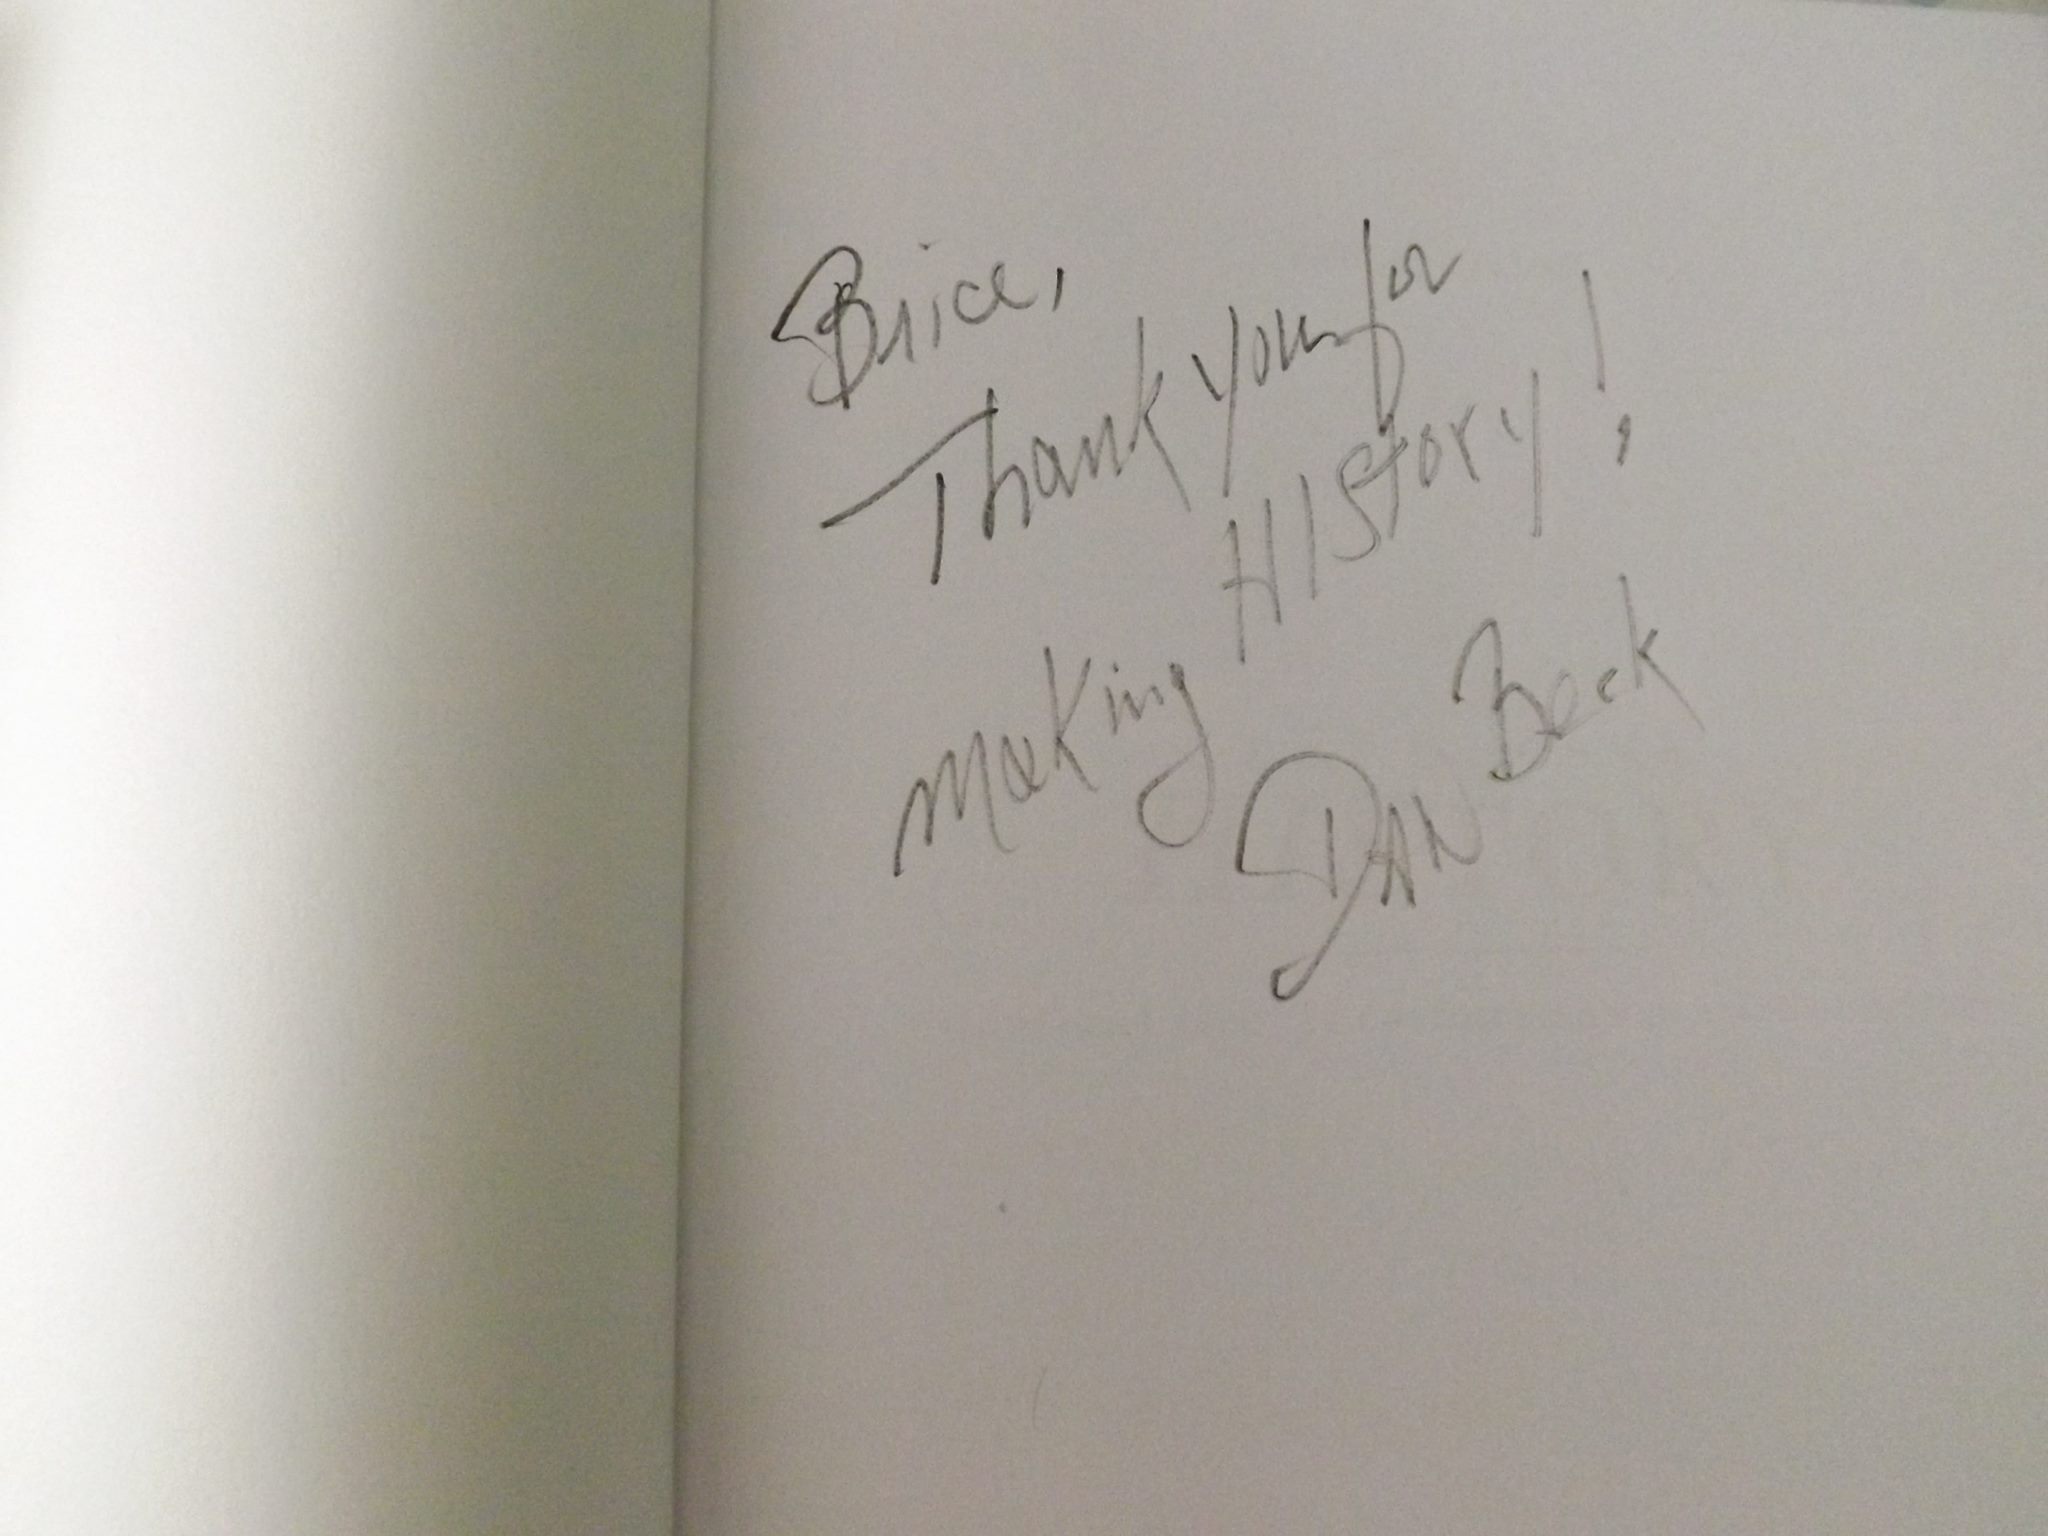 Brice,
Thank you for
making HIStory!
DAN Beck